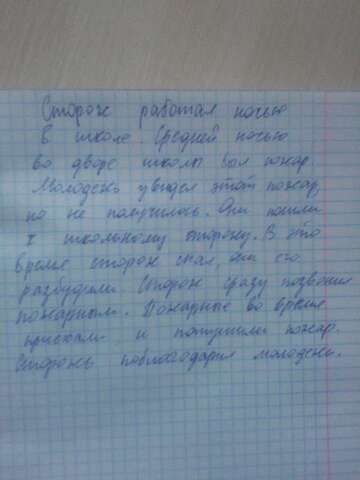 Сторож работал ночью
в школе. Средней ночью
во дворе школы был пожар.
Молодежь увидел этот пожар,
но не получилось. Они пошли
к школьному сторожу. В это
время сторож спал, они его
разбудили. Сторож сразу позвонил
пожарным. Пожарные во время
приехали и потушили пожар.
Сторожь поблагодарил молодежь.